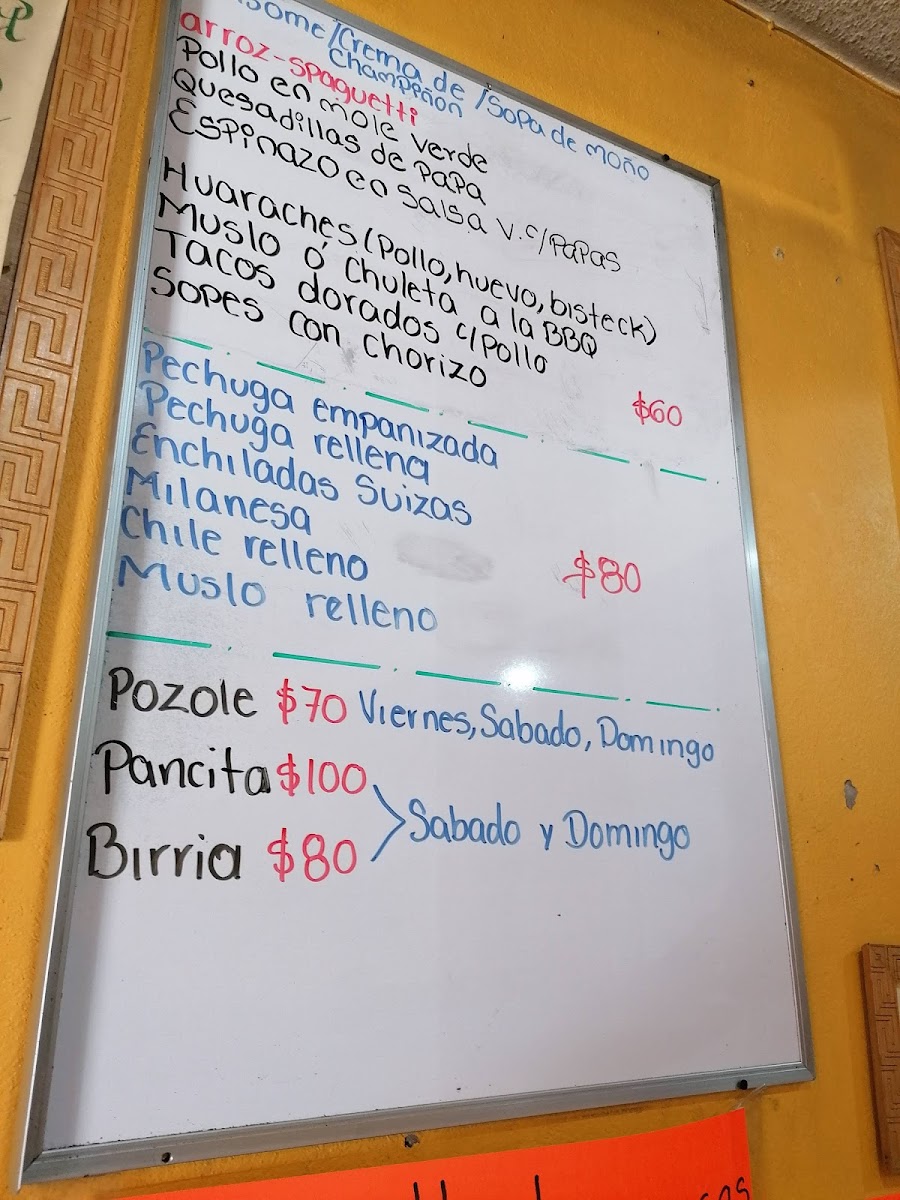 Crema de / Sopa de moño
Champiñon
arroz-spaguetti
Pollo en mole verde
Quesadillas de Papa
Espinazo en salsa v. c/Papas
Huaraches (Pollo, huevo, bisteck)
Muslo ó Chuleta a la BBQ
Tacos dorados c/Pollo
Sopes con chorizo
$60
Pechuga empanizada
Pechuga rellena
Enchiladas Suizas
Milanesa
Chile relleno
$80
Muslo relleno
Pozole $70 Viernes, Sabado, Domingo
Pancita $100
Sabado y Domingo
Birria $80